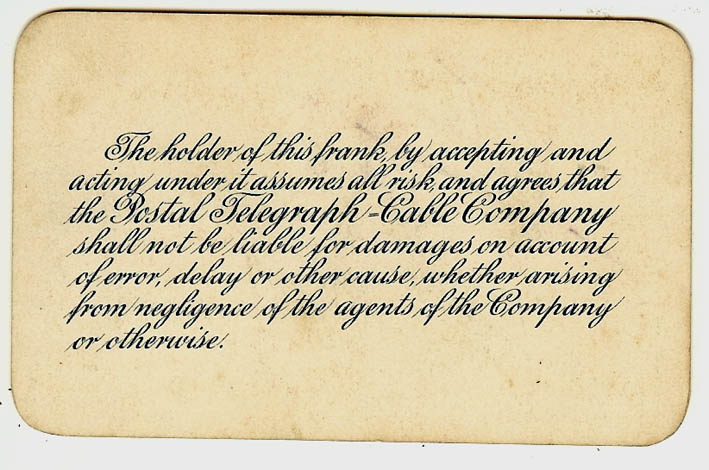 The holder of this frank, by accepting and
acting under it assumes all risk, and agrees that
the Postal Telegraph-Cable Company
shall not be liable for damages on account
of error, delay or other cause, whether arising
from negligence of the agents of the Company
or otherwise.